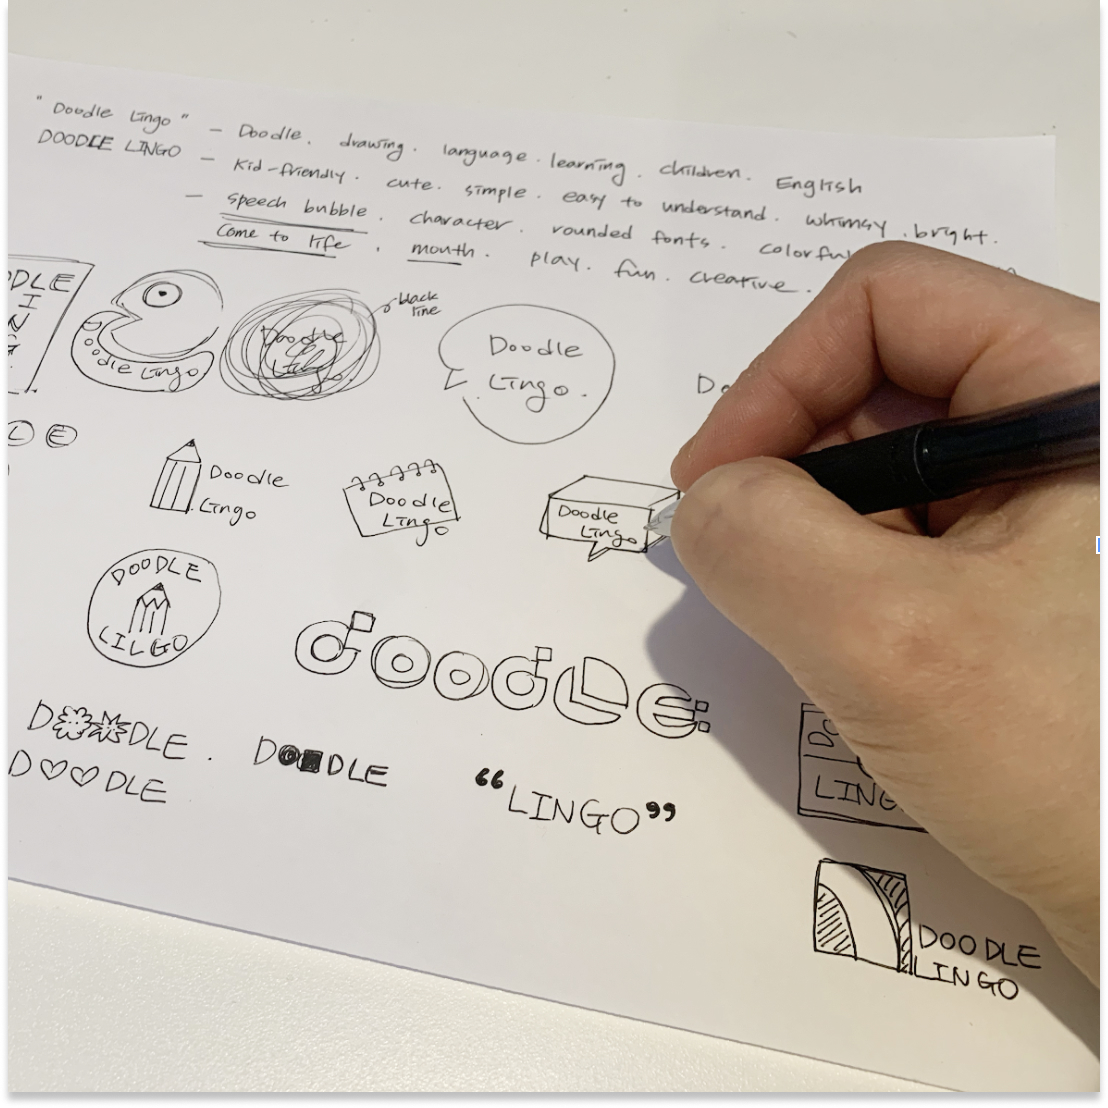 "Doodle Lingo" - Doodle. drawing. language. learning. children. English
DOODLE LINGO - kid-friendly. cute. simple. easy to understand. whimsy. bright.
- speech bubble. character. rounded fonts. colorful
come to life. mouth. play. fun. creative.
black line
DLE
I
N
G
Doodle Lingo
Doodle
Lingo
Doodle
Lingo.
Do
L E
Doodle
Lingo
Doodle
Lingo
Doodle
Lingo
DOODLE
LILGO
doodLe:
DOODLE.
DOODLE
"LINGO"
DOODLE
DO
LING
DOODLE
LINGO